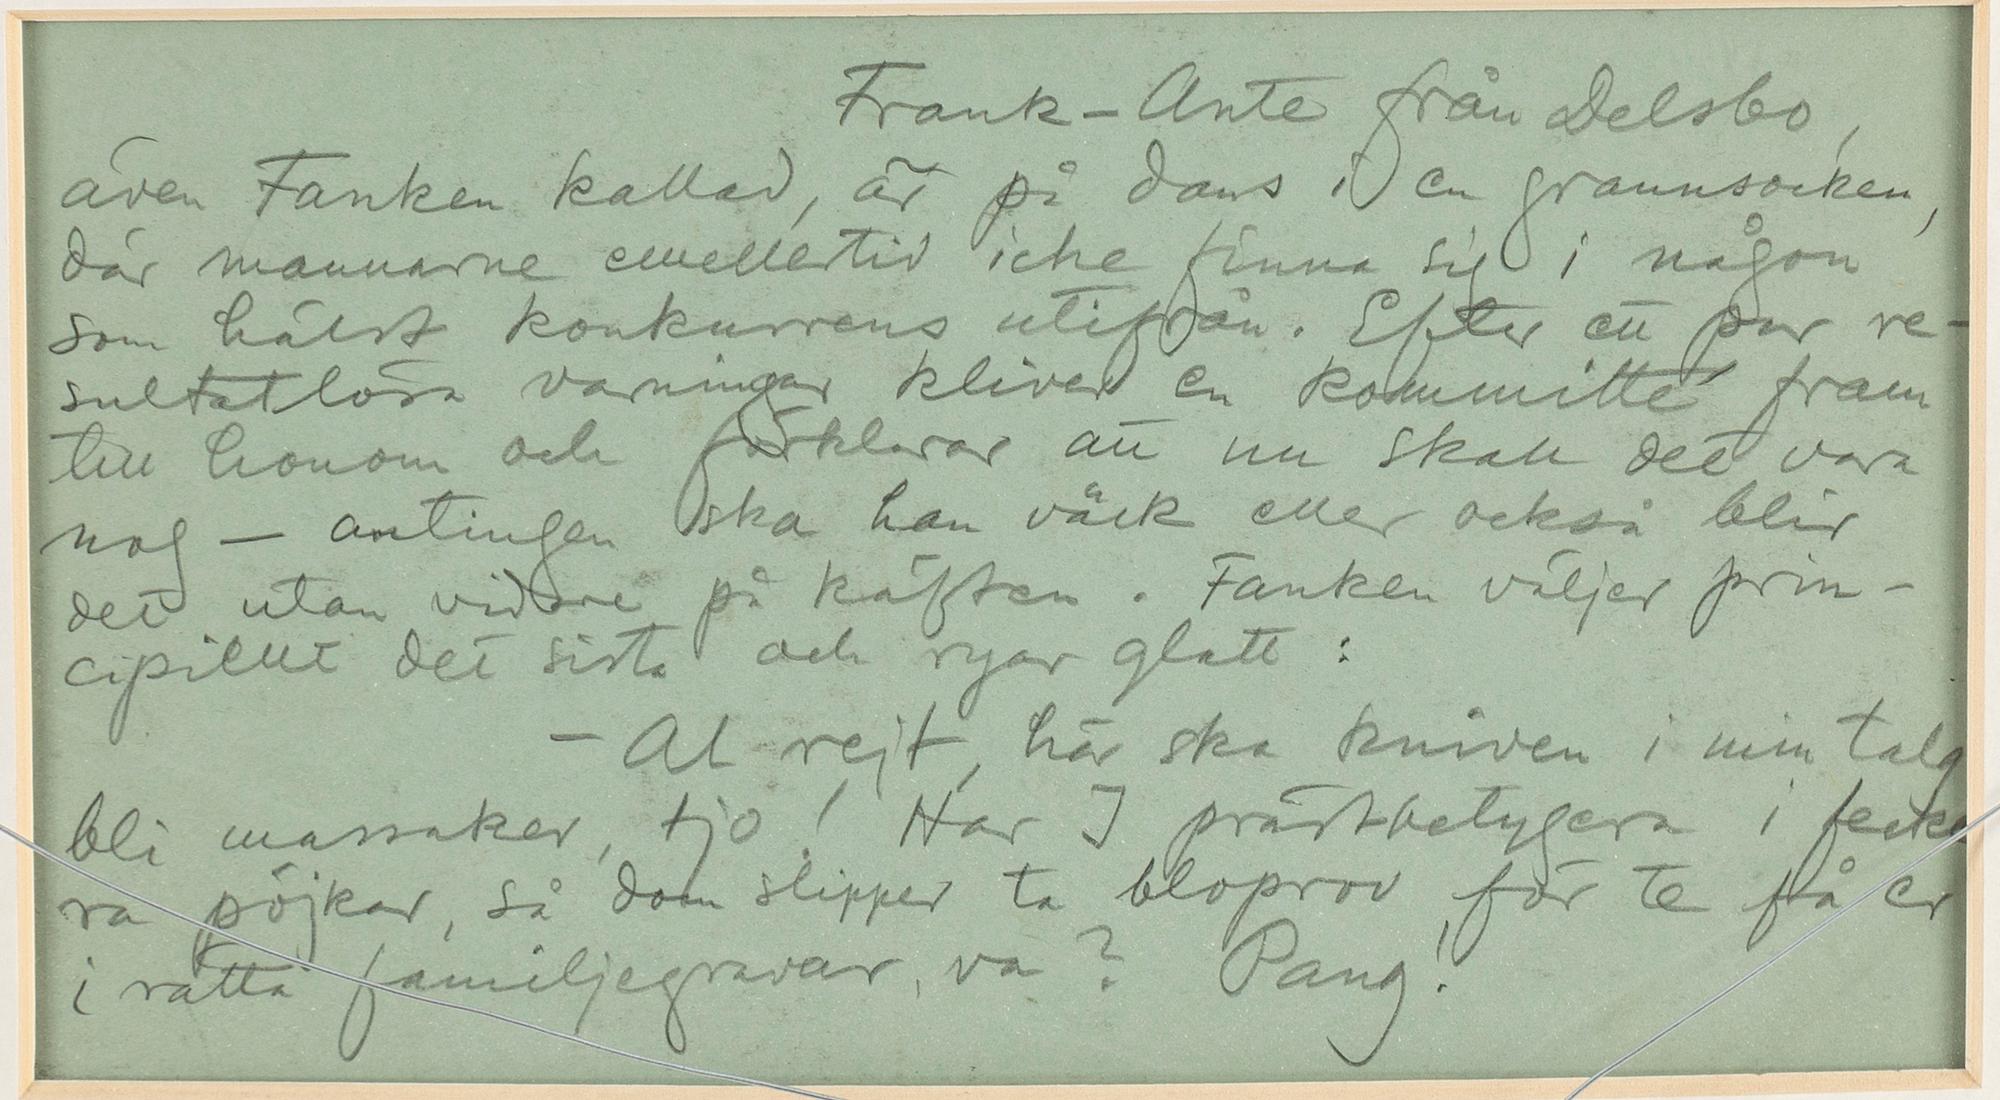 Frank-Ante från Delsbo,
även Fanken kallad, är på dans i en grannsocken,
där mannarne emellertid icke finna sig i någon
som hälst konkurrens utifrån. Efter ett par re-
sultatlösa varningar kliver en kommitté fram
till honom och förklarar att nu skall det vara
nog - antingen ska han väck eller också blir
det utan vidare på käften. Fanken väljer prin-
cipiellt det sista och ryar glatt:
- Al rejt, här ska kniven i min talg
bli massaker, tjo! Har I prästbetygera i ficke
ra pöjkar, så dom slipper ta bloprov för te få er
i rätta familjegravar, va? Pang!